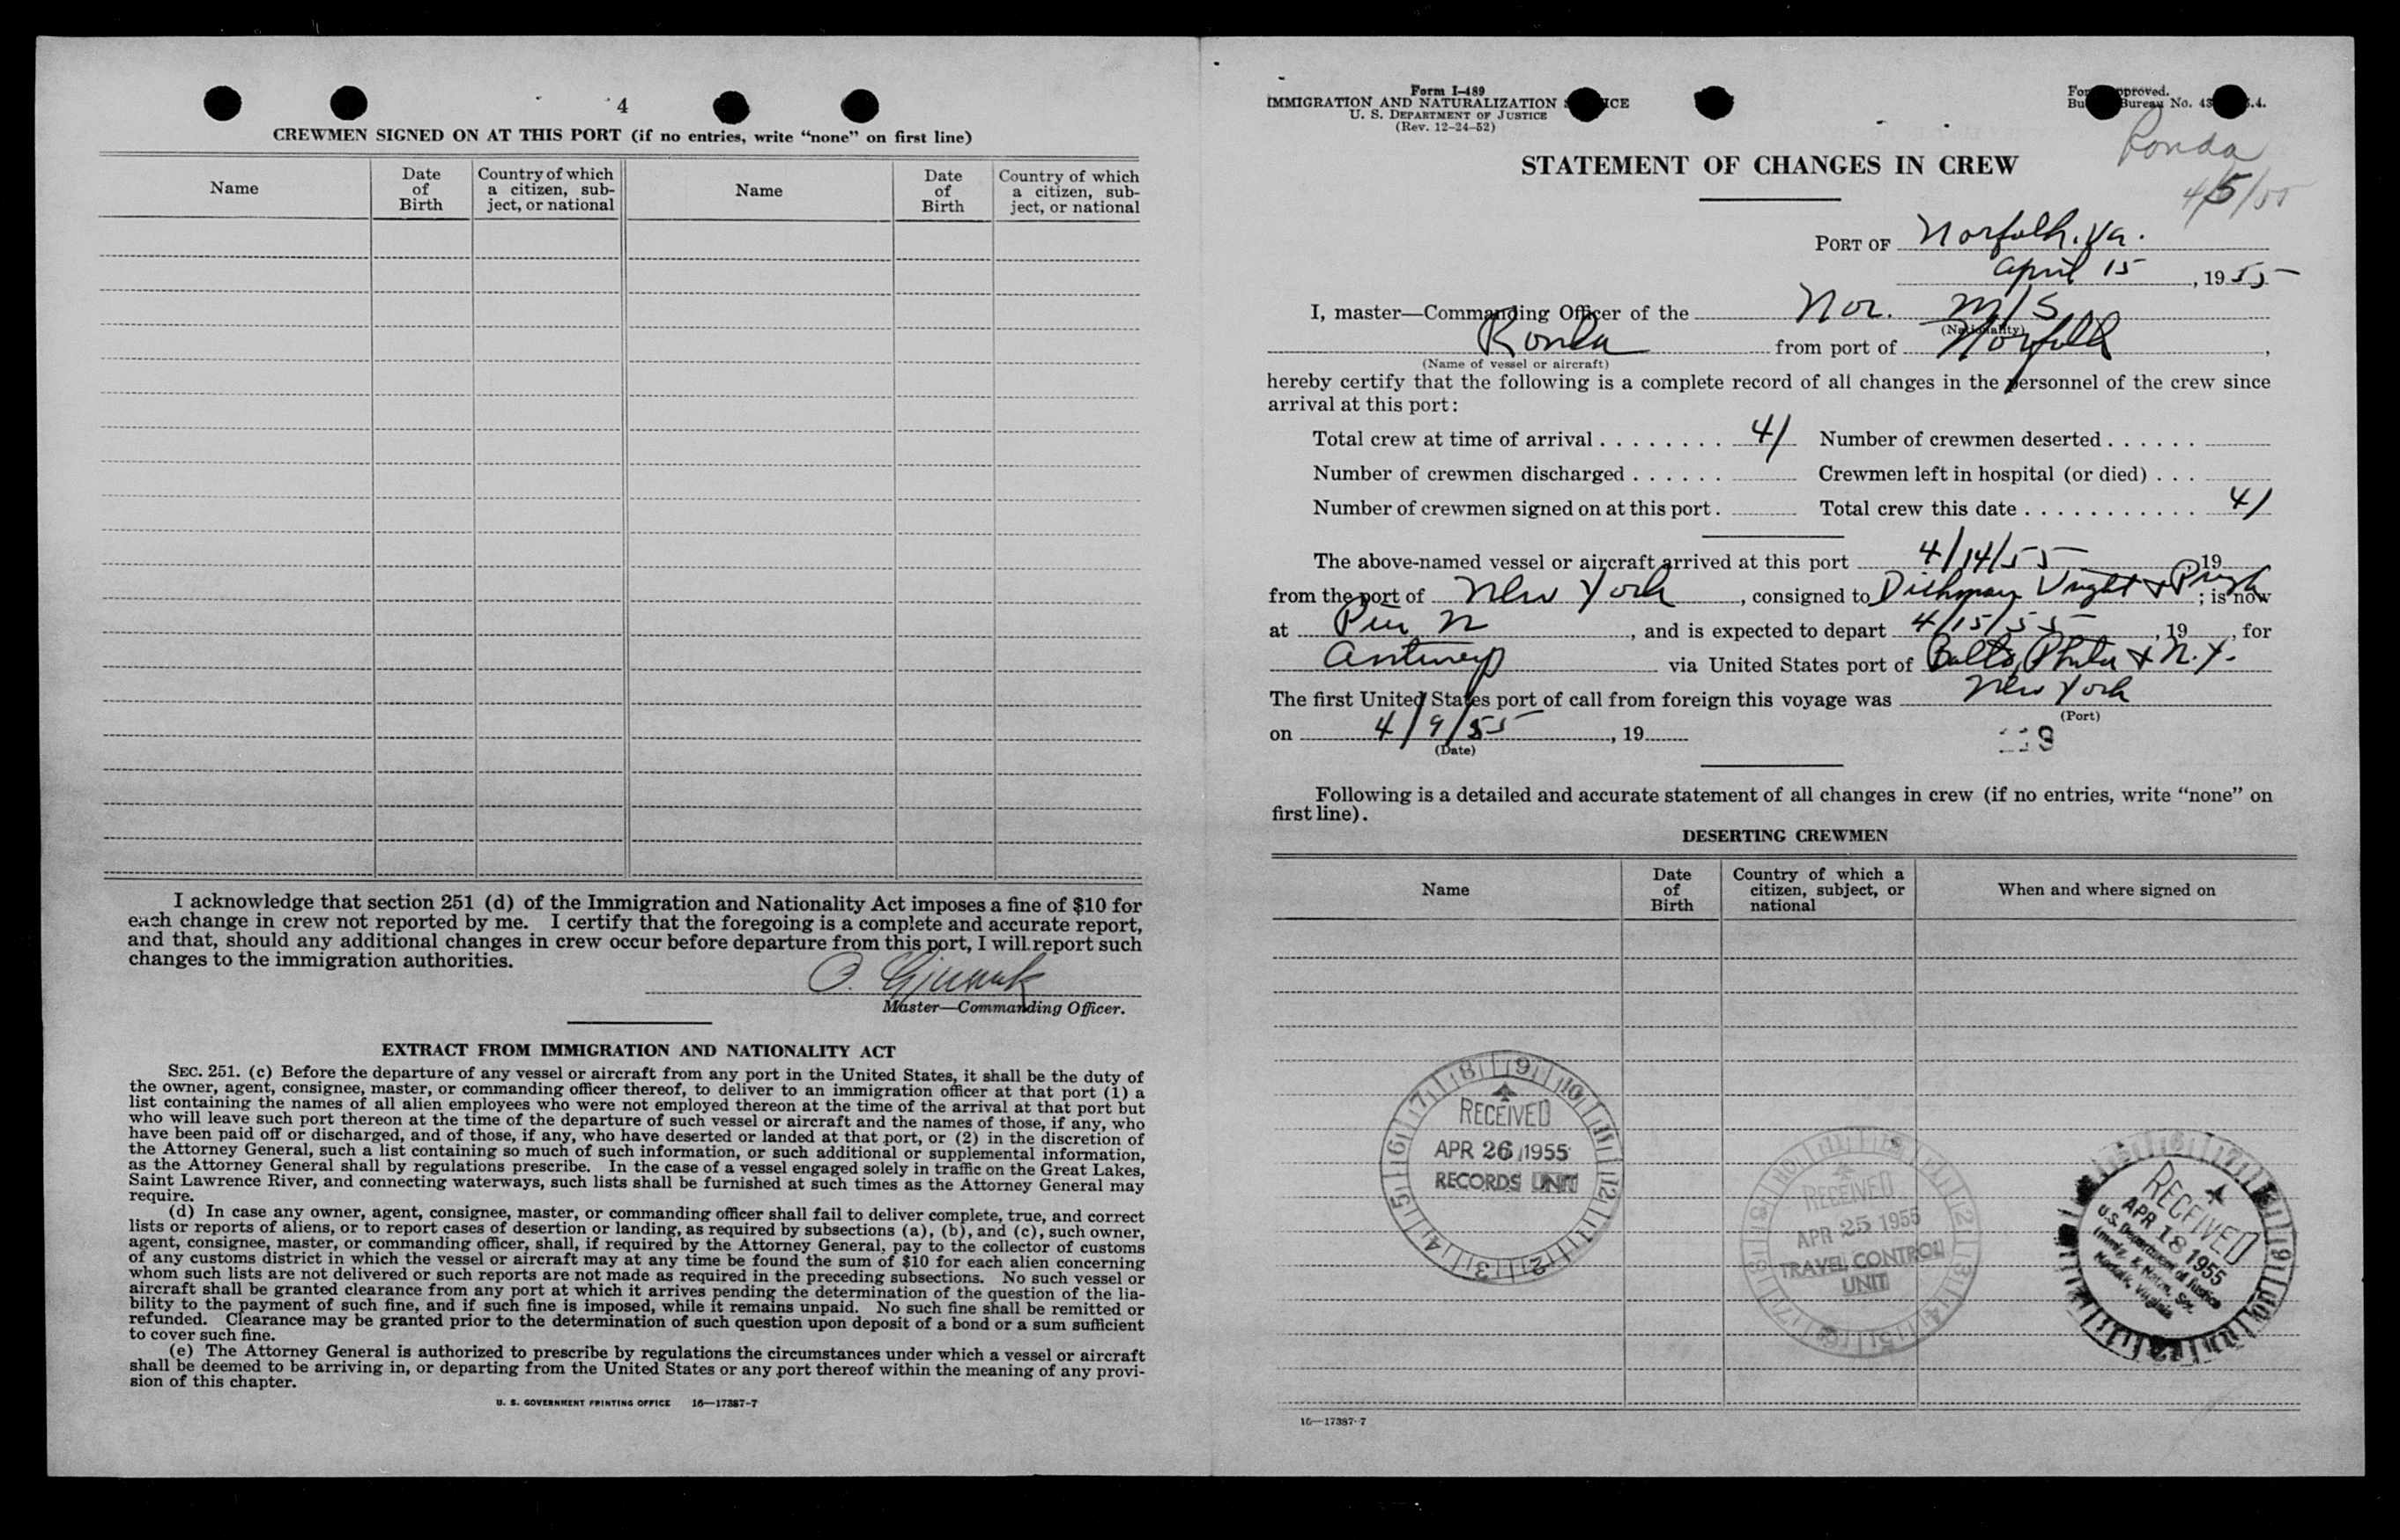 4
CREWMEN SIGNED ON AT THIS PORT (if no entries, write “none” on first line)
Name
Date of Birth
Country of which a citizen, sub-ject, or national
Name
Date of Birth
Country of which a citizen, sub-ject, or national
I acknowledge that section 251 (d) of the Immigration and Nationality Act imposes a fine of $10 for
each change in crew not reported by me. I certify that the foregoing is a complete and accurate report,
and that, should any additional changes in crew occur before departure from this port, I will report such
changes to the immigration authorities.
Master—Commanding Officer.
EXTRACT FROM IMMIGRATION AND NATIONALITY ACT
SEC. 251. (c) Before the departure of any vessel or aircraft from any port in the United States, it shall be the duty of
the owner, agent, consignee, master, or commanding officer thereof, to deliver to an immigration officer at that port (1) a
list containing the names of all alien employees who were not employed thereon at the time of the arrival at that port but
who will leave such port thereon at the time of the departure of such vessel or aircraft and the names of those, if any, who
have been paid off or discharged, and of those, if any, who have deserted or landed at that port, or (2) in the discretion of
the Attorney General, such a list containing so much of such information, or such additional or supplemental information,
as the Attorney General shall by regulations prescribe. In the case of a vessel engaged solely in traffic on the Great Lakes,
Saint Lawrence River, and connecting waterways, such lists shall be furnished at such times as the Attorney General may
require.
(d) In case any owner, agent, consignee, master, or commanding officer shall fail to deliver complete, true, and correct
lists or reports of aliens, or to report cases of desertion or landing, as required by subsections (a), (b), and (c), such owner,
agent, consignee, master, or commanding officer, shall, if required by the Attorney General, pay to the collector of customs
of any customs district in which the vessel or aircraft may at any time be found the sum of $10 for each alien concerning
whom such lists are not delivered or such reports are not made as required in the preceding subsections. No such vessel or
aircraft shall be granted clearance from any port at which it arrives pending the determination of the question of the lia-
bility to the payment of such fine, and if such fine is imposed, while it remains unpaid. No such fine shall be remitted or
refunded. Clearance may be granted prior to the determination of such question upon deposit of a bond or a sum sufficient
to cover such fine.
(e) The Attorney General is authorized to prescribe by regulations the circumstances under which a vessel or aircraft
shall be deemed to be arriving in, or departing from the United States or any port thereof within the meaning of any provi-
sion of this chapter.
U. S. GOVERNMENT PRINTING OFFICE 16—17387-7
Form I-489
IMMIGRATION AND NATURALIZATION
U. S. DEPARTMENT OF JUSTICE
(Rev. 12-24-52)
Bureau No.
Ronda
4/5/55
STATEMENT OF CHANGES IN CREW
PORT OF Norfolk, Va.
April 15, 1955
I, master—Commanding Officer of the Nor. M/S
(Nationality)
Ronda from port of Norfolk,
(Name of vessel or aircraft)
hereby certify that the following is a complete record of all changes in the personnel of the crew since
arrival at this port:
Total crew at time of arrival . . . . . . . . 41 Number of crewmen deserted . . . . . .
Number of crewmen discharged . . . . . . Crewmen left in hospital (or died) . . .
Number of crewmen signed on at this port . Total crew this date . . . . . . . . . . . 41
The above-named vessel or aircraft arrived at this port 4/14/55, 19
from the port of New York, consigned to Wright & Pugh; is now
at Pier N, and is expected to depart 4/15/55, 19, for
Antwerp via United States port of Balto, Phila & N.Y.
The first United States port of call from foreign this voyage was New York
(Port)
on 4/9/55, 19
(Date)
Following is a detailed and accurate statement of all changes in crew (if no entries, write “none” on
first line).
DESERTING CREWMEN
Name
Date of Birth
Country of which a citizen, subject, or national
When and where signed on
RECEIVED
APR 26 1955
RECORDS UNIT
RECEIVED
APR 25 1955
TRAVEL CONTROL
UNIT
RECEIVED
APR 18 1955
U.S. Department of Justice
Immig. & Natzn. Ser.
Norfolk, Virginia
16—17387-7